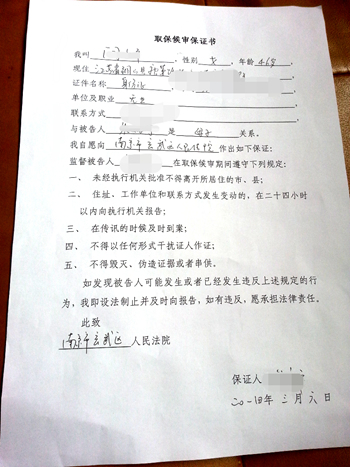 取保候审保证书
我叫 ，性别 女 ，年龄 46岁
现住 江苏省
证件名称 身份证
单位及职业 无业
联系方式
与被告人 是 母子 关系。
我自愿向 南京市玄武区人民法院 作出如下保证：
监督被告人 在取保候审期间遵守下列规定：
一、 未经执行机关批准不得离开所居住的市、县；
二、 住址、工作单位和联系方式发生变动的，在二十四小时
以内向执行机关报告；
三、 在传讯的时候及时到案；
四、 不得以任何形式干扰证人作证；
五、 不得毁灭、伪造证据或者串供。
如发现被告人可能发生或者已经发生违反上述规定的行
为，我即设法制止并及时向报告，如有违反，愿承担法律责任。
此致
南京市玄武区 人民法院
保证人
二〇一四年 三 月 六 日